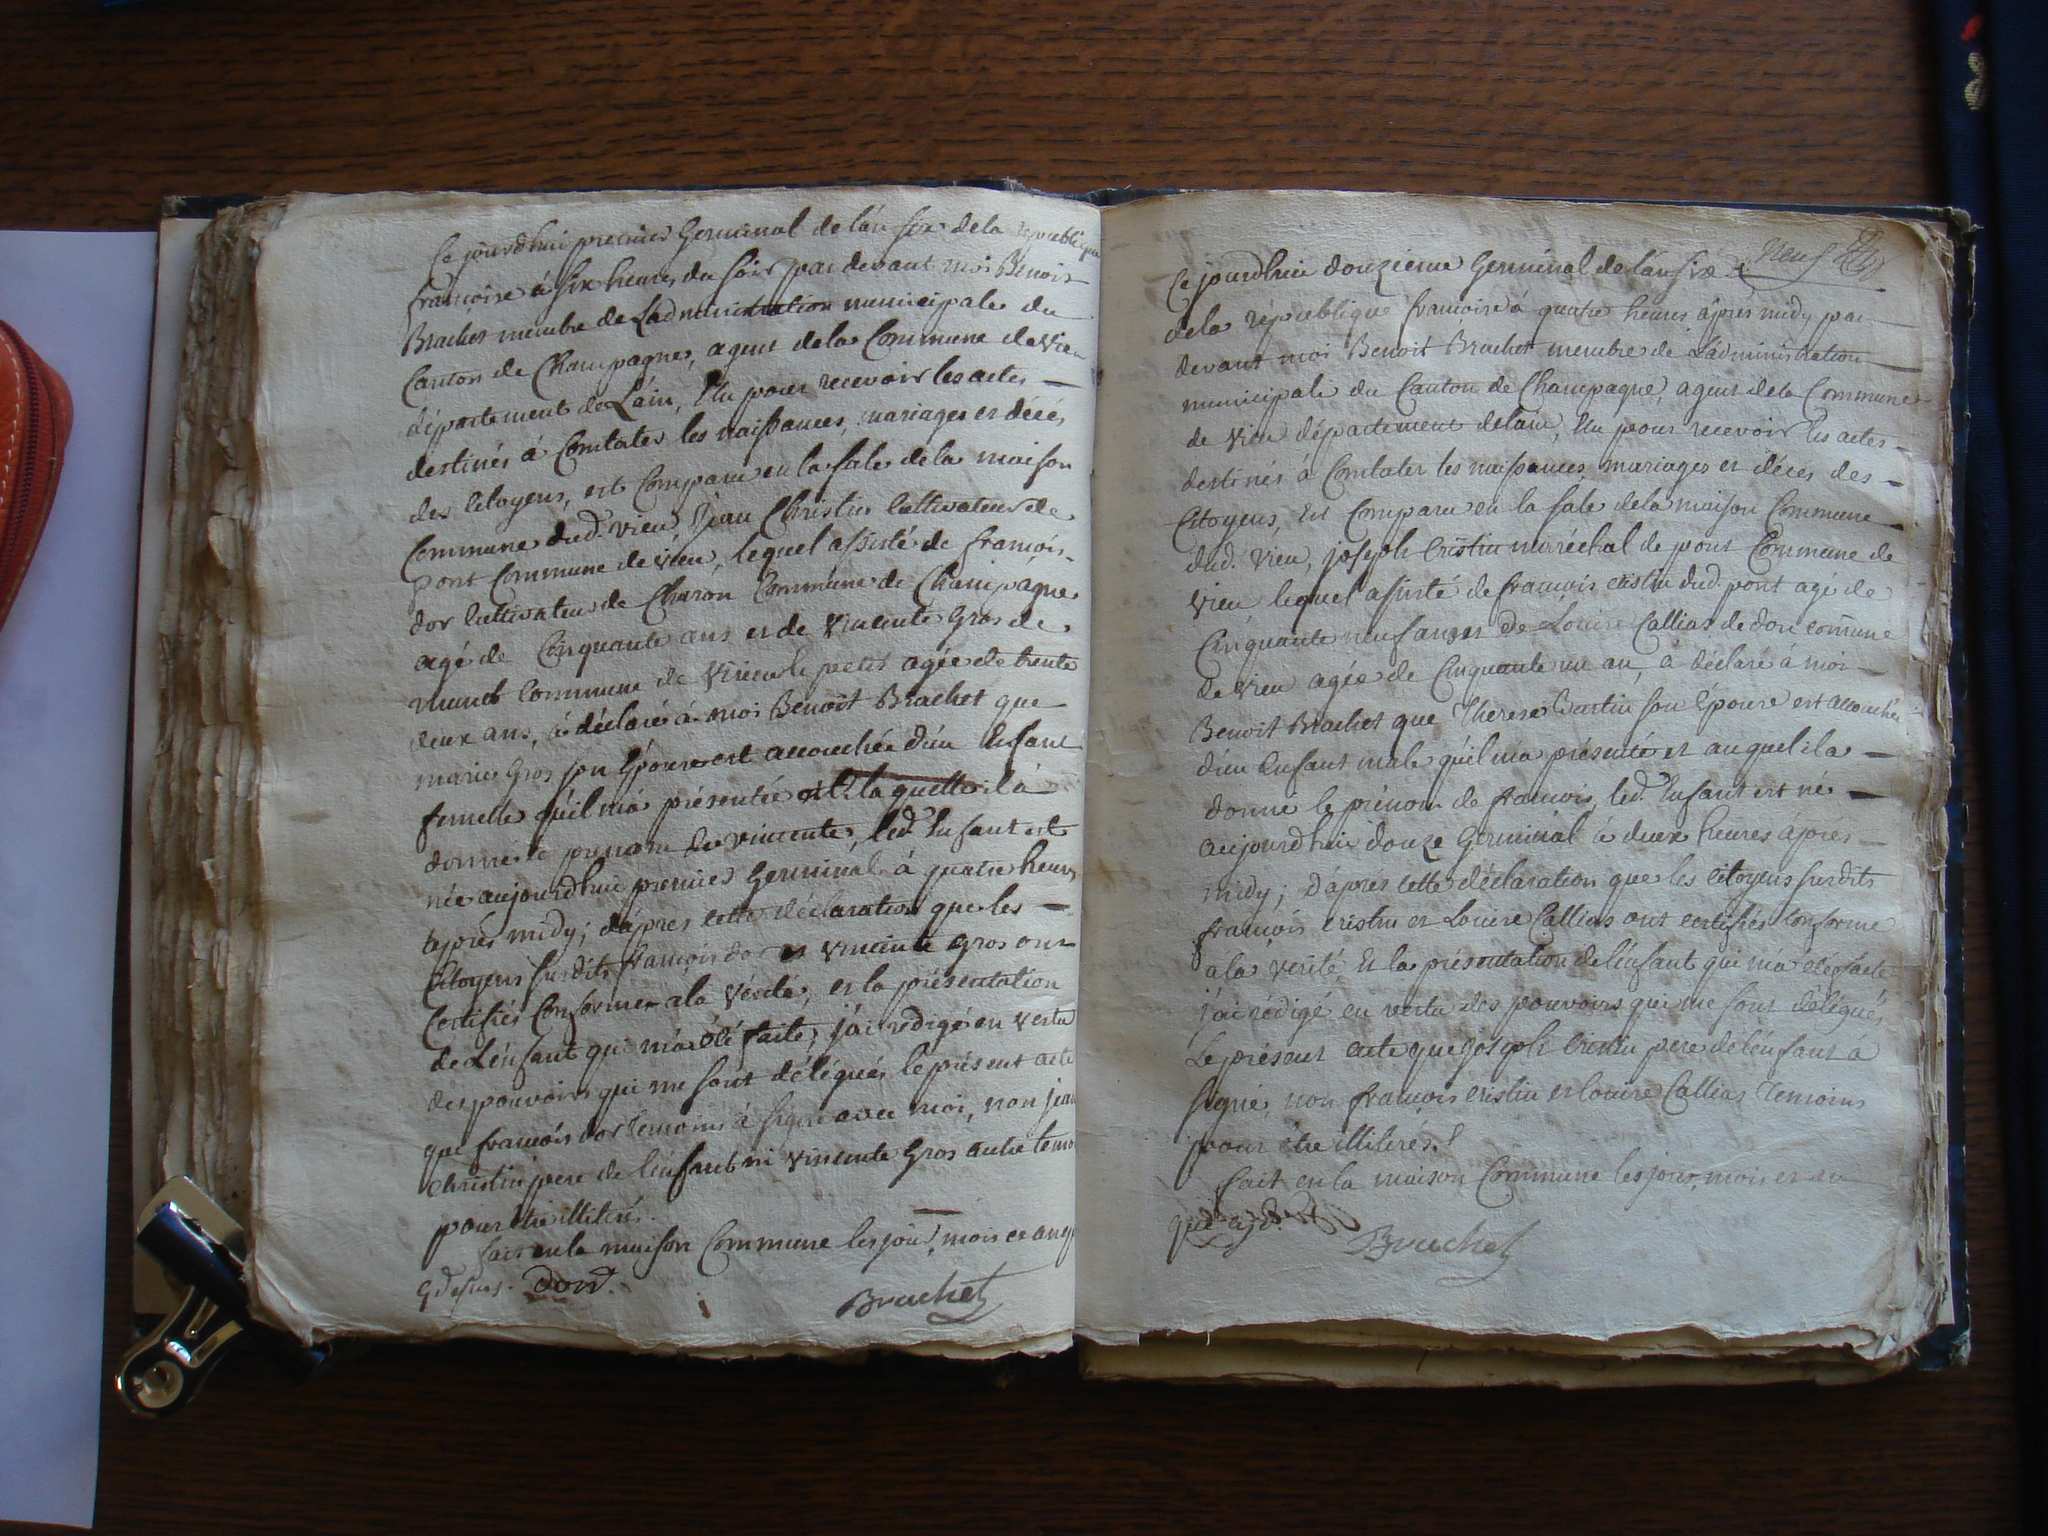 Ce jourdhui premier Germinal de lan six de la republique
francoise à six heures du soir par devant moi Benoit
Brachet membre de Ladministration municipale du
Canton de Champagne, agent de la Commune de Vieu
département de Lain, Elu pour recevoir les actes
destinés à Constater les naissances, mariages et décés,
des Citoyens, est Comparu en la sale de la maison
Commune dud. vieu, Jean Christin Cultivateur de
pont Commune de vieu, lequel assisté de francois
dor Cultivateur de Charon Commune de Champagne
agé de Cinquante ans et de Vincente Gros de
Commune de Virieu le petit agée de trente
deux ans, à déclaré à moi Benoit Brachet que
marie Gros son Épouse est accouchée d'un Enfant
femelle qu'il m'a présentée et à laquelle il à
donné le prenom de vincente, led. Enfant est
née aujourdhui premier Germinal à quatre heures
après midy; d'après cette déclaration que les
Citoyens susdits francois dor et vincente Gros ont
Certifiés Conforme a la vérité, et la présentation
de L'énfant qui m'a été faite, j'ai redigé en vertu
des pouvoirs qui me sont délégués le présent acte
que francois dor temoins à signé avec moi, non jean
Christin pere de lenfant ni vincente Gros autre temoin
pour etre illitérés.
fait en la maison Commune les jour, mois et an que
dessus. dord. Brachet
neuf
Ce jourdhui douzieme Germinal de lan six
de la république francoise à quatre heures après midy par
devant moi Benoit Brachet membre de Ladministration
municipale du Canton de Champagne, agent de la Commune
de vieu département de lain, Elu pour recevoir les actes
destinés à Constater les naissances, mariages et décés des
Citoyens, Est Comparu en la sale de la maison Commune
dud. vieu, joseph Cristin maréchal de pont Commune de
vieu lequel assisté de francois cristin dud. pont agé de
Cinquante neuf ans et de Louise Callias de don commune
de vieu agée de Cinquante un an, à déclaré à moi
Benoit Brachet que Therese son Épouse est accouchée
d'un Enfant male qu'il m'a présenté et auquel il a
donné le prénom de francois, led. Enfant est né
aujourdhui douze Germinal à deux heures après
midy; d'après cette déclaration que les citoyens susdits
francois cristin et Louise Callias ont certifiés Conforme
a la vérité, Et la présentation de l'enfant qui m'a été faite
j'ai rédigé en vertu des pouvoirs qui me sont délégués
Le présent acte que joseph Cristin pere de lénfant à
signé, non francois cristin et louise Callias Temoins
pour étre illitérés.
fait en la maison Commune les jour, mois et an
que
Brachet